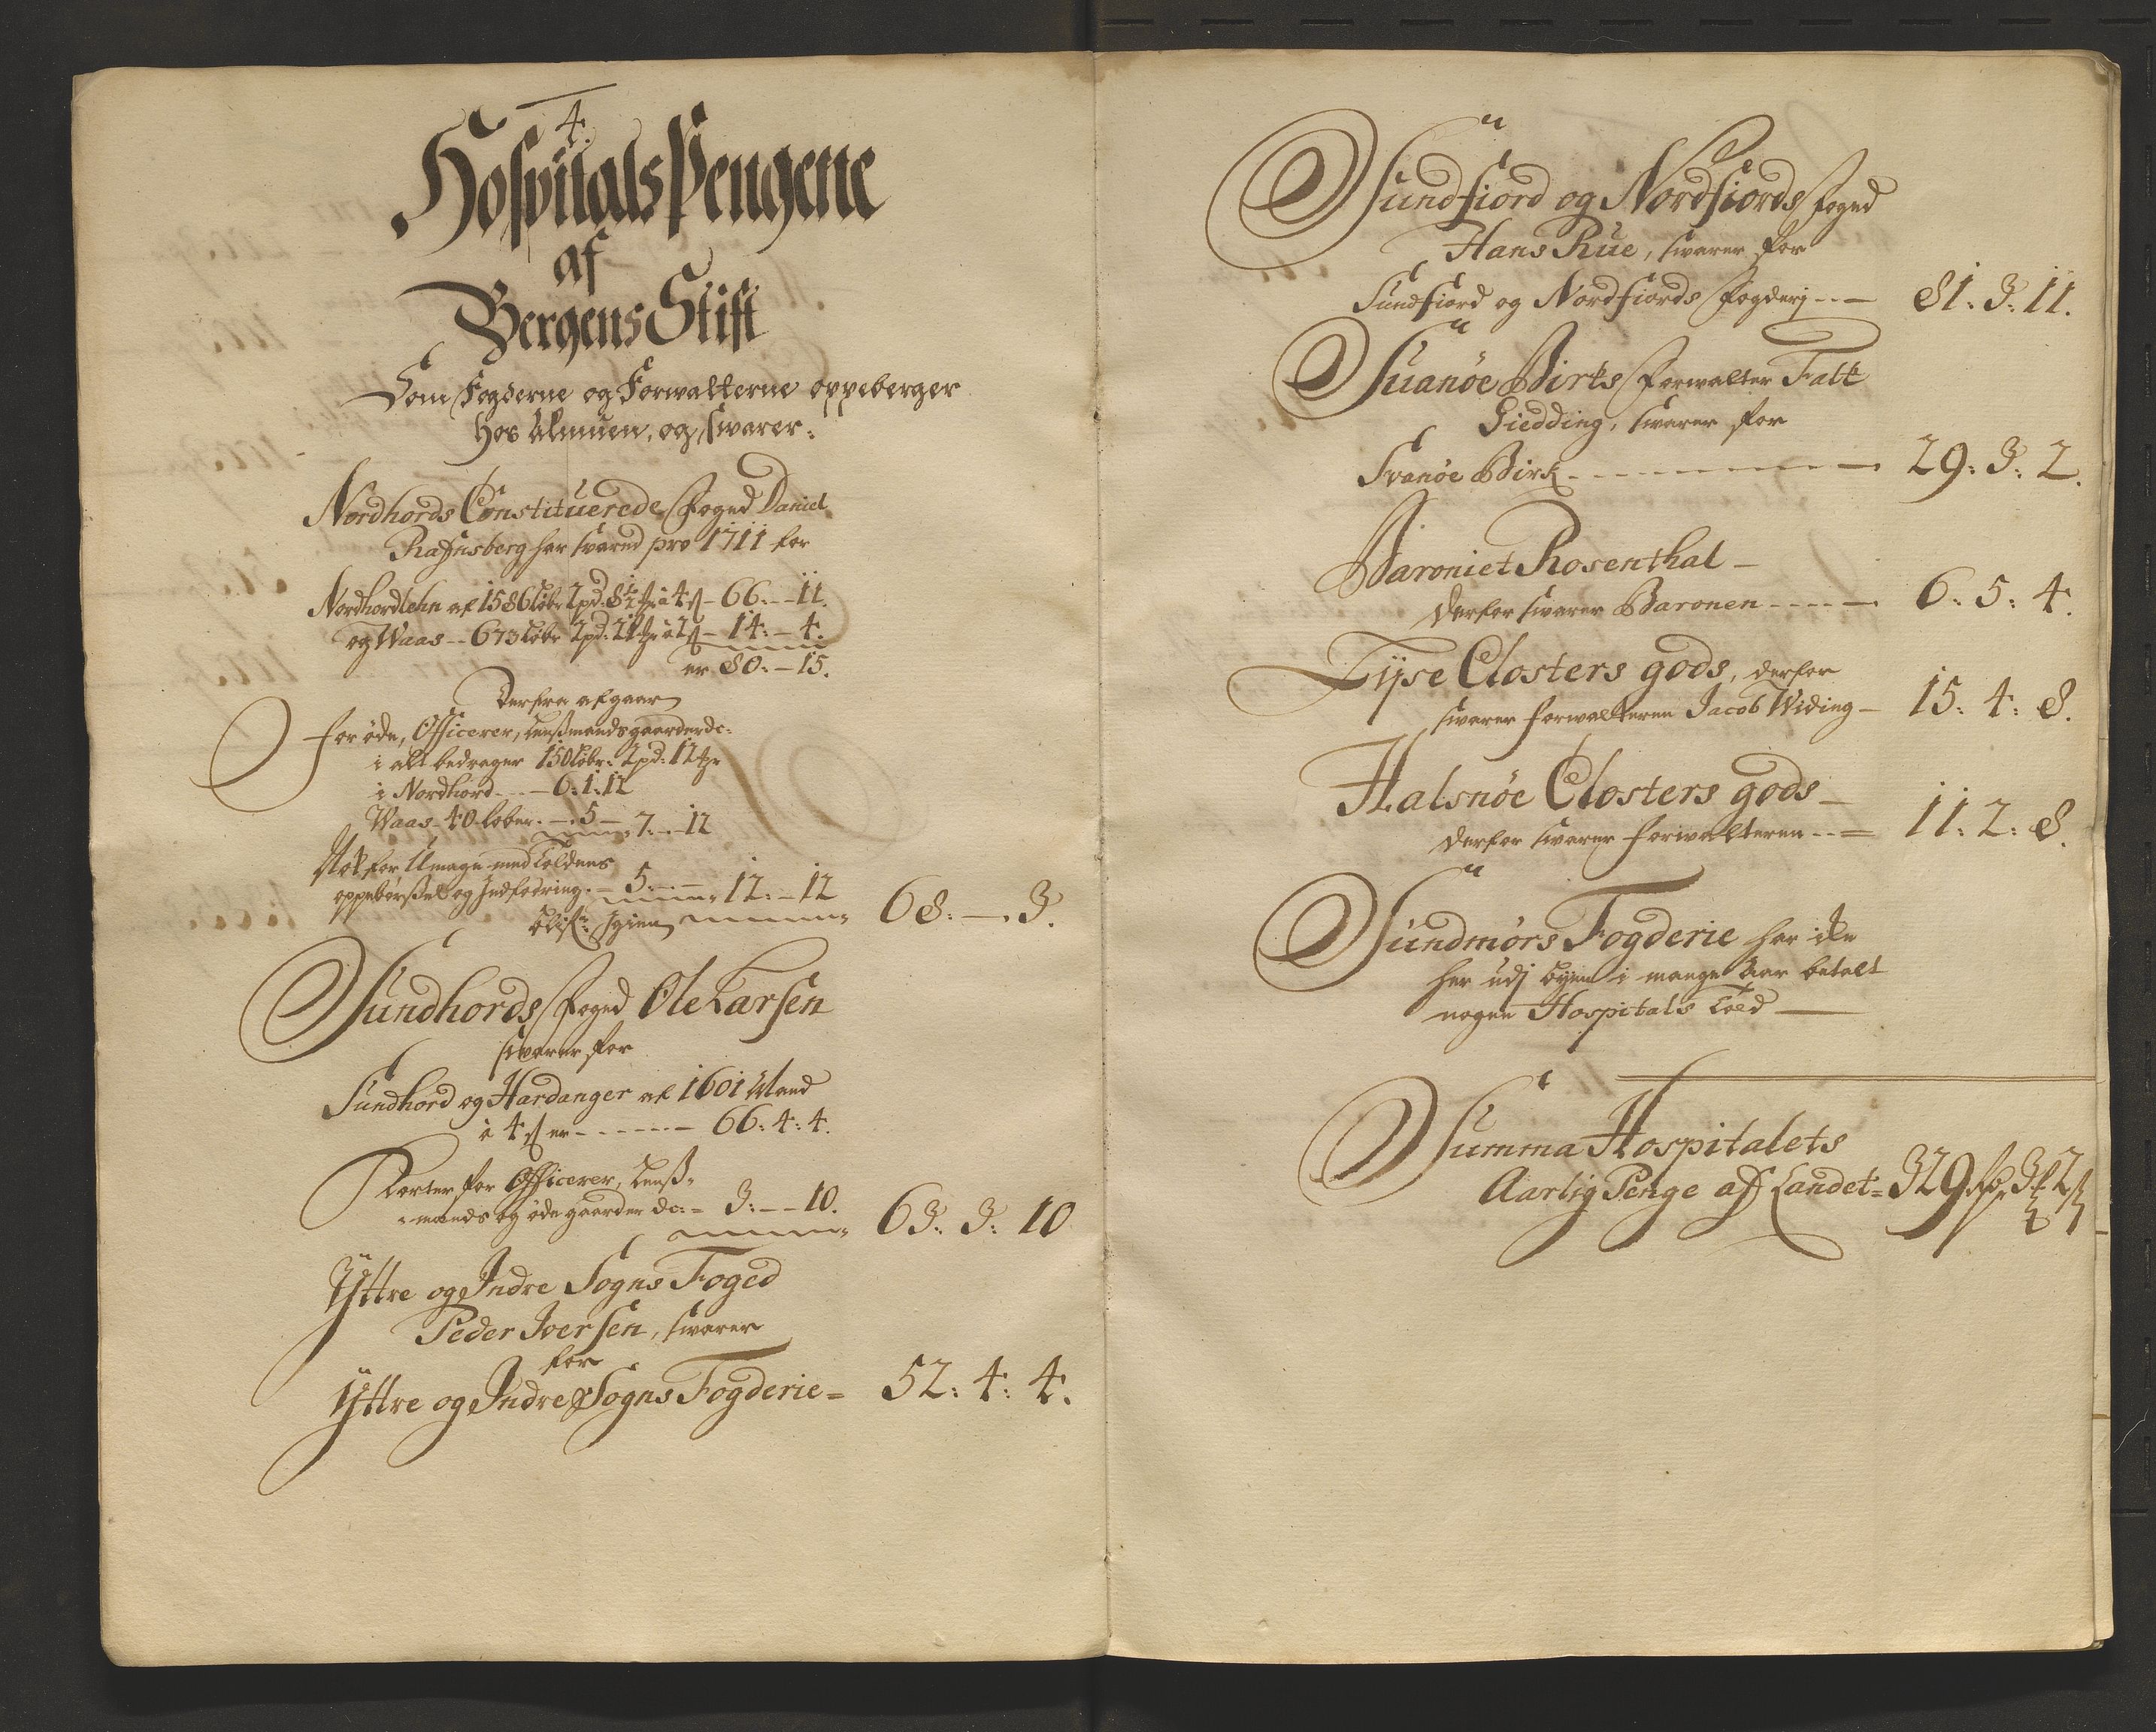 4.
Hospitals Pengene
af
Bergens Stift
Som Fogderne og Forwalterne oppeberger
hos Almuen, og swarer:
Nordhords Constituerede Foged Daniel
Rafnsberg har svared pro 1711 for
Nordhordlehn af 1586 løbr 2 pd: 8½ à 4 ß - 66. - 11.
og Waas - 673 Løbr 2 pd: 21 à 2 ß - 14: - 4.
er 80: - 15.
Derfra afgaar
for øde, Officerer, Lensmandsgaarder &c:
i alt bedrager 150 Løbr: 2 pd: 12
i Nordhord - - - 6: 1: 12
Waas - 40 løber. - . 5 - 7. - . 12
Nok for Umage med Toldens
oppebørßel og Indfodring. - 5. - - 12: - 12
blifr: igien 68: - . 3.
Sundhords Foged Ole Larsen
swarer for
Sundhord og Hardanger af 1601 Mand
à 4 ß er - - - - - - 66: 4: 4.
Korter for Officerer, Lenß-
mands og øde gaarder &c: - 3: - - 10. 63: 3: 10
Yttre og Indre Sogns Foged
Peder Iversen, swarer
for
Yttre og Indre Sogns Fogderie = 52: 4: 4.
Sundfiord og Nordfiords Foged
Hans Rüe, swarer for
Sundfiord og Nordfiords Fogderj - - - 81: 3: 11.
Suanöe Birks Forwalter Falk
Giedding, swarer for
Svanöe Birk - - - - - - - 29: 3: 2.
Baroniet Rosenthal -
derfor swarer Baronen - - - - - 6: 5: 4.
Lyse Closters gods, derfor
swarer forwalteren Jacob Widing - 15: 4: 8.
Halsnöe Closters gods -
derfor swarer forwalteren - - = 11: 2: 8.
Sundmörs Fogderie har iche
her udj byen i mange Aar betalt
nogen Hospitals Told —
Summa Hospitalets
Aarlig Penge aff Landet = 329 rdr 3 2 ß